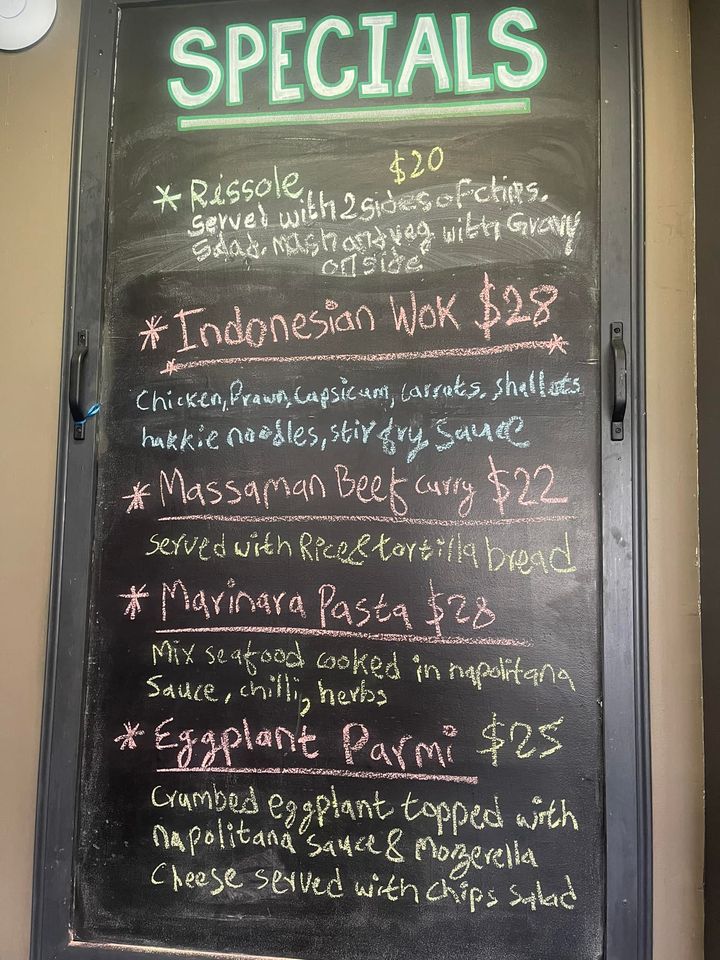 SPECIALS
* Rissole $20
Served with 2 sides of chips.
Salad. mash and veg with Gravy
on side
* Indonesian Wok $28
Chicken, Prawn, Capsicum, Carrots, Shallots
hakkie noodles, stir fry Sauce
* Massaman Beef curry $22
Served with Rice & tortilla bread
* Marinara Pasta $28
Mix seafood cooked in napolitana
Sauce, chilli, herbs
* Eggplant Parmi $25
Crumbed eggplant topped with
napolitana sauce & Mozzerella
Cheese served with Chips Salad